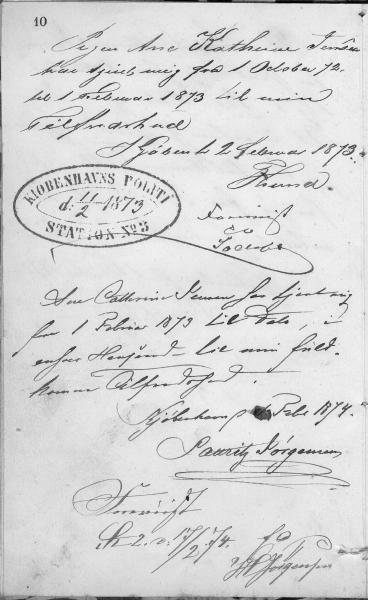 10
Pigen Ane Kathrine Jensen
har tjent mig fra 1 October 72
til 1 Februar 1873 til min
Tilfredshed
Kjøbenh 2 Februar 1873.
KJØBENHAVNS POLITI
d. 11/2 1873
STATION No 3
Ane Cathrine Jensen har tjent mig
fra 1 Februar 1873 til Dato, i
enhver Henseende til min fuld-
komne Tilfredshed.
Kjøbenhavn Febr 1874.
Lauritz Jørgensen
Forevist
St 2. d. 17/2 74.
Jørgensen